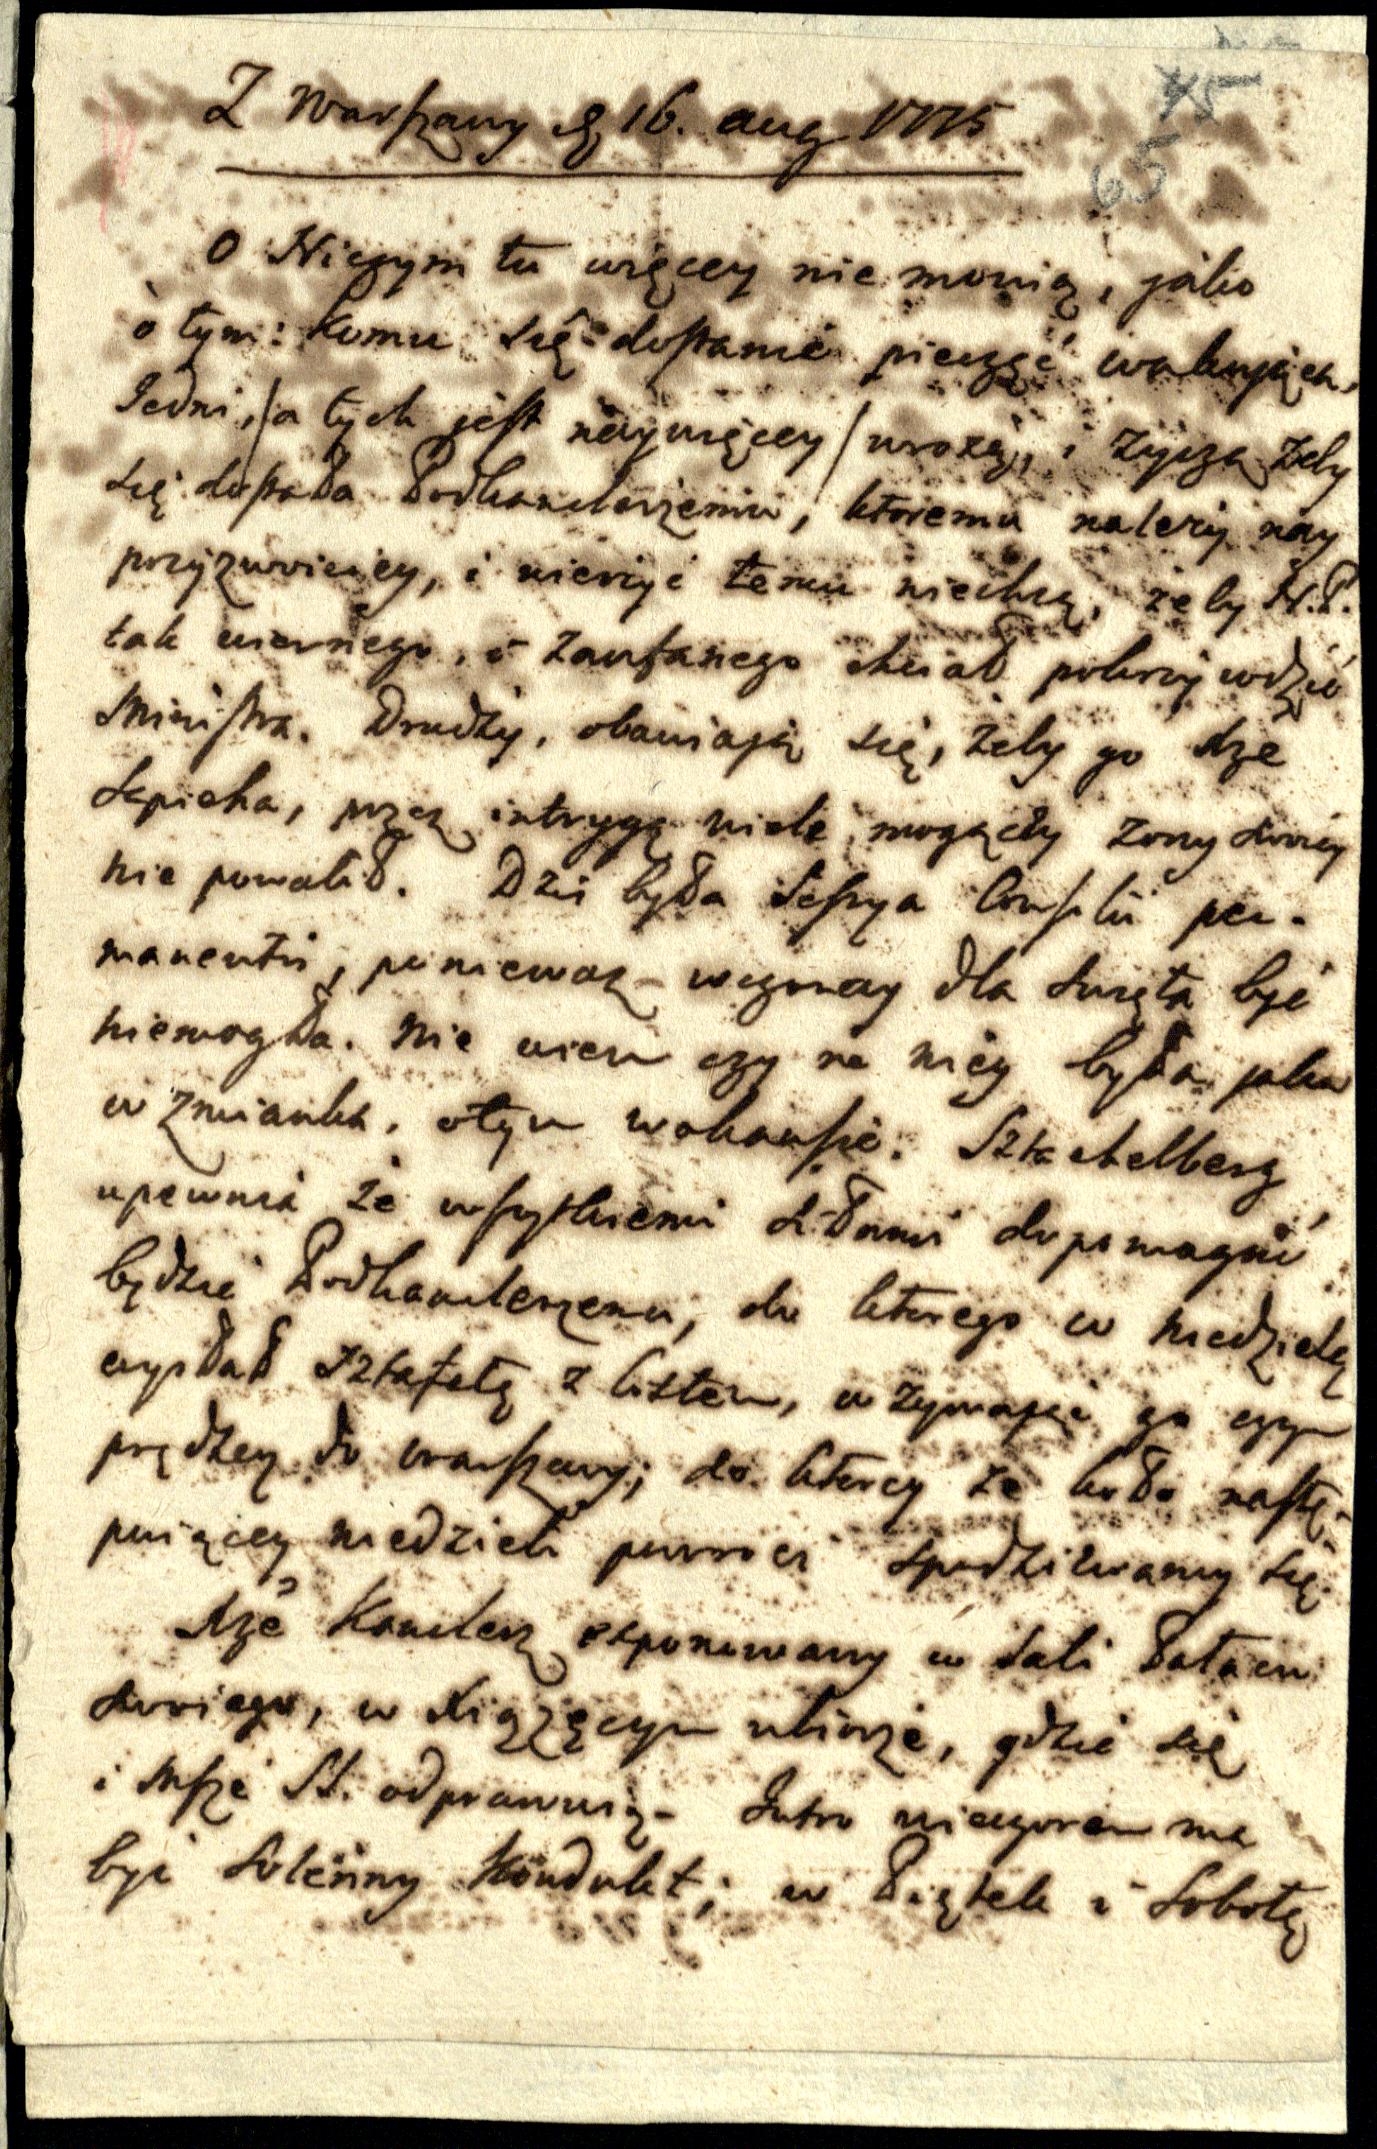 75
65
Z Warszawy d. 16. aug 1775
O Niczym tu więcey nie mowią, jako
o tym: komu się dostanie pieczęć wakująca.
Jedni, /a tych jest naywięcey/ wrożą, i życzą żeby
się dostała Podkanclerzemu, ktoremu należy nay
przyzwoiciey, i wierzyć temu niechcą, żeby N.P.
tak wiernego, i zaufanego chciał pokrzywdzić
Ministra. Drudzy, obawiają się, żeby go Xże
Sapieha, przez intrygę wiele mogącey żony swoiey
nie powalił. Dziś była Sessya Consilii per-
manentis, ponieważ wczoray dla święta być
niemogła. Nie wiem czy na niey była jaka
wzmianka, o tym wakansie. Sztachelberg
upewnia że wszystkiemi siłami dopomagać
będzie Podkanclerzemu, do ktorego w niedzielę
wysłał sztafetę z listem, wzywając go czym
prędzey do Warszawy; do ktorey że koło nastę-
puiącey niedzieli powroci spodziewamy się.
Xże Kanclerz exponowany w Sali Pałacu
swoiego, w Xiążęcym ubiorze, gdzie się
i Msze SS. odprawuią. Jutro wieczorem ma
być solenny kondukt; w Piątek i Sobotę